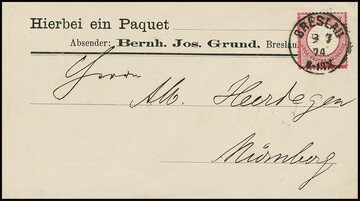 Hierbei ein Paquet
Absender: Bernh. Jos. Grund, Breslau
BRESLAU
9 7
74
Herrn
Alb. Heerdegen
Nürnberg